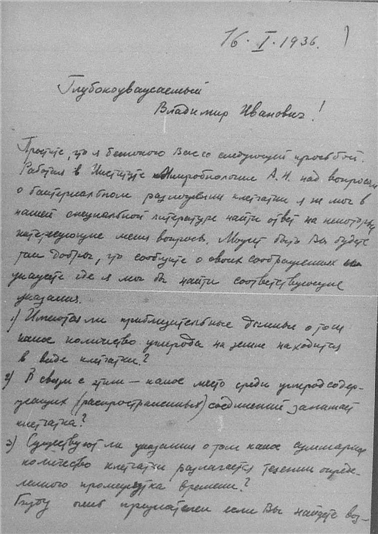 16·I·1936.
Глубокоуважаемый
Владимир Иванович!
Простите, что я беспокою Вас со следующей просьбой.
Работая в Институте Микробиологии А.Н. над вопросом
о бактериальном разложении клетчатки я не мог в
нашей специальной литературе найти ответ на некоторые
интересующие меня вопросы. Может быть Вы будете
так добры, что сообщите о своих соображениях или
укажете где я мог бы найти соответствующие
указания.
1) Имеются ли приблизительные данные о том
какое количество углерода на земле находится
в виде клетчатки?
2) В связи с этим – какое место среди углеродсодер-
жащих (распространенных) соединений занимает
клетчатка?
3) Существуют ли указания о том какое суммарное
количество клетчатки разлагается в течении опреде-
ленного промежутка времени?
Буду очень признателен если Вы найдете воз-